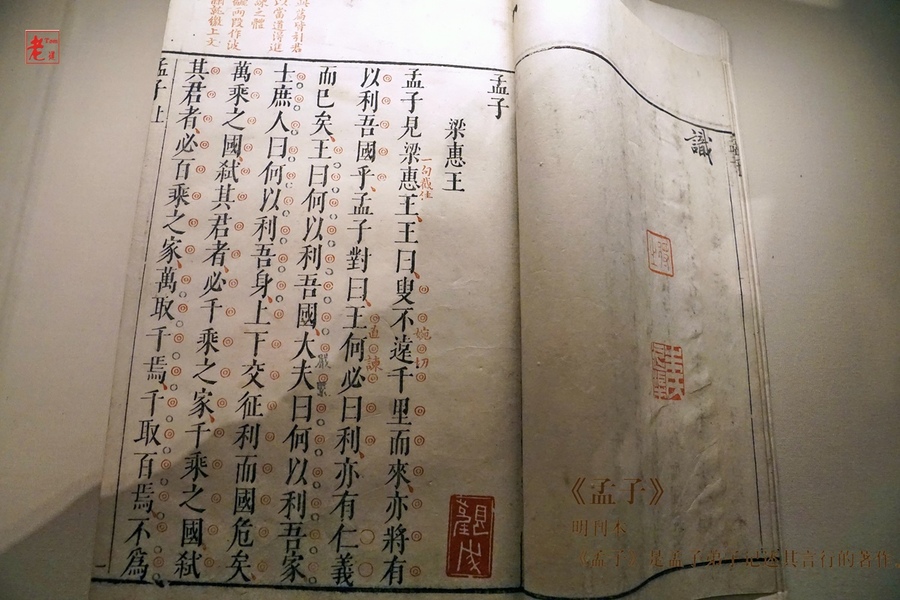 識
孟子
梁惠王
孟子見梁惠王、王曰、叟不遠千里而來、亦將有
婉切
以利吾國乎、孟子對曰、王何必曰利、亦有仁義
直諫
而已矣、王曰何以利吾國、大夫曰何以利吾家、
士庶人曰何以利吾身、上下交征利而國危矣、
萬乘之國、弒其君者、必千乘之家、千乘之國、弒
其君者、必百乘之家、萬取千焉、千取百焉、不為
孟子上
《孟子》
明刊本
《孟子》是孟子弟子记述其言行的著作
老